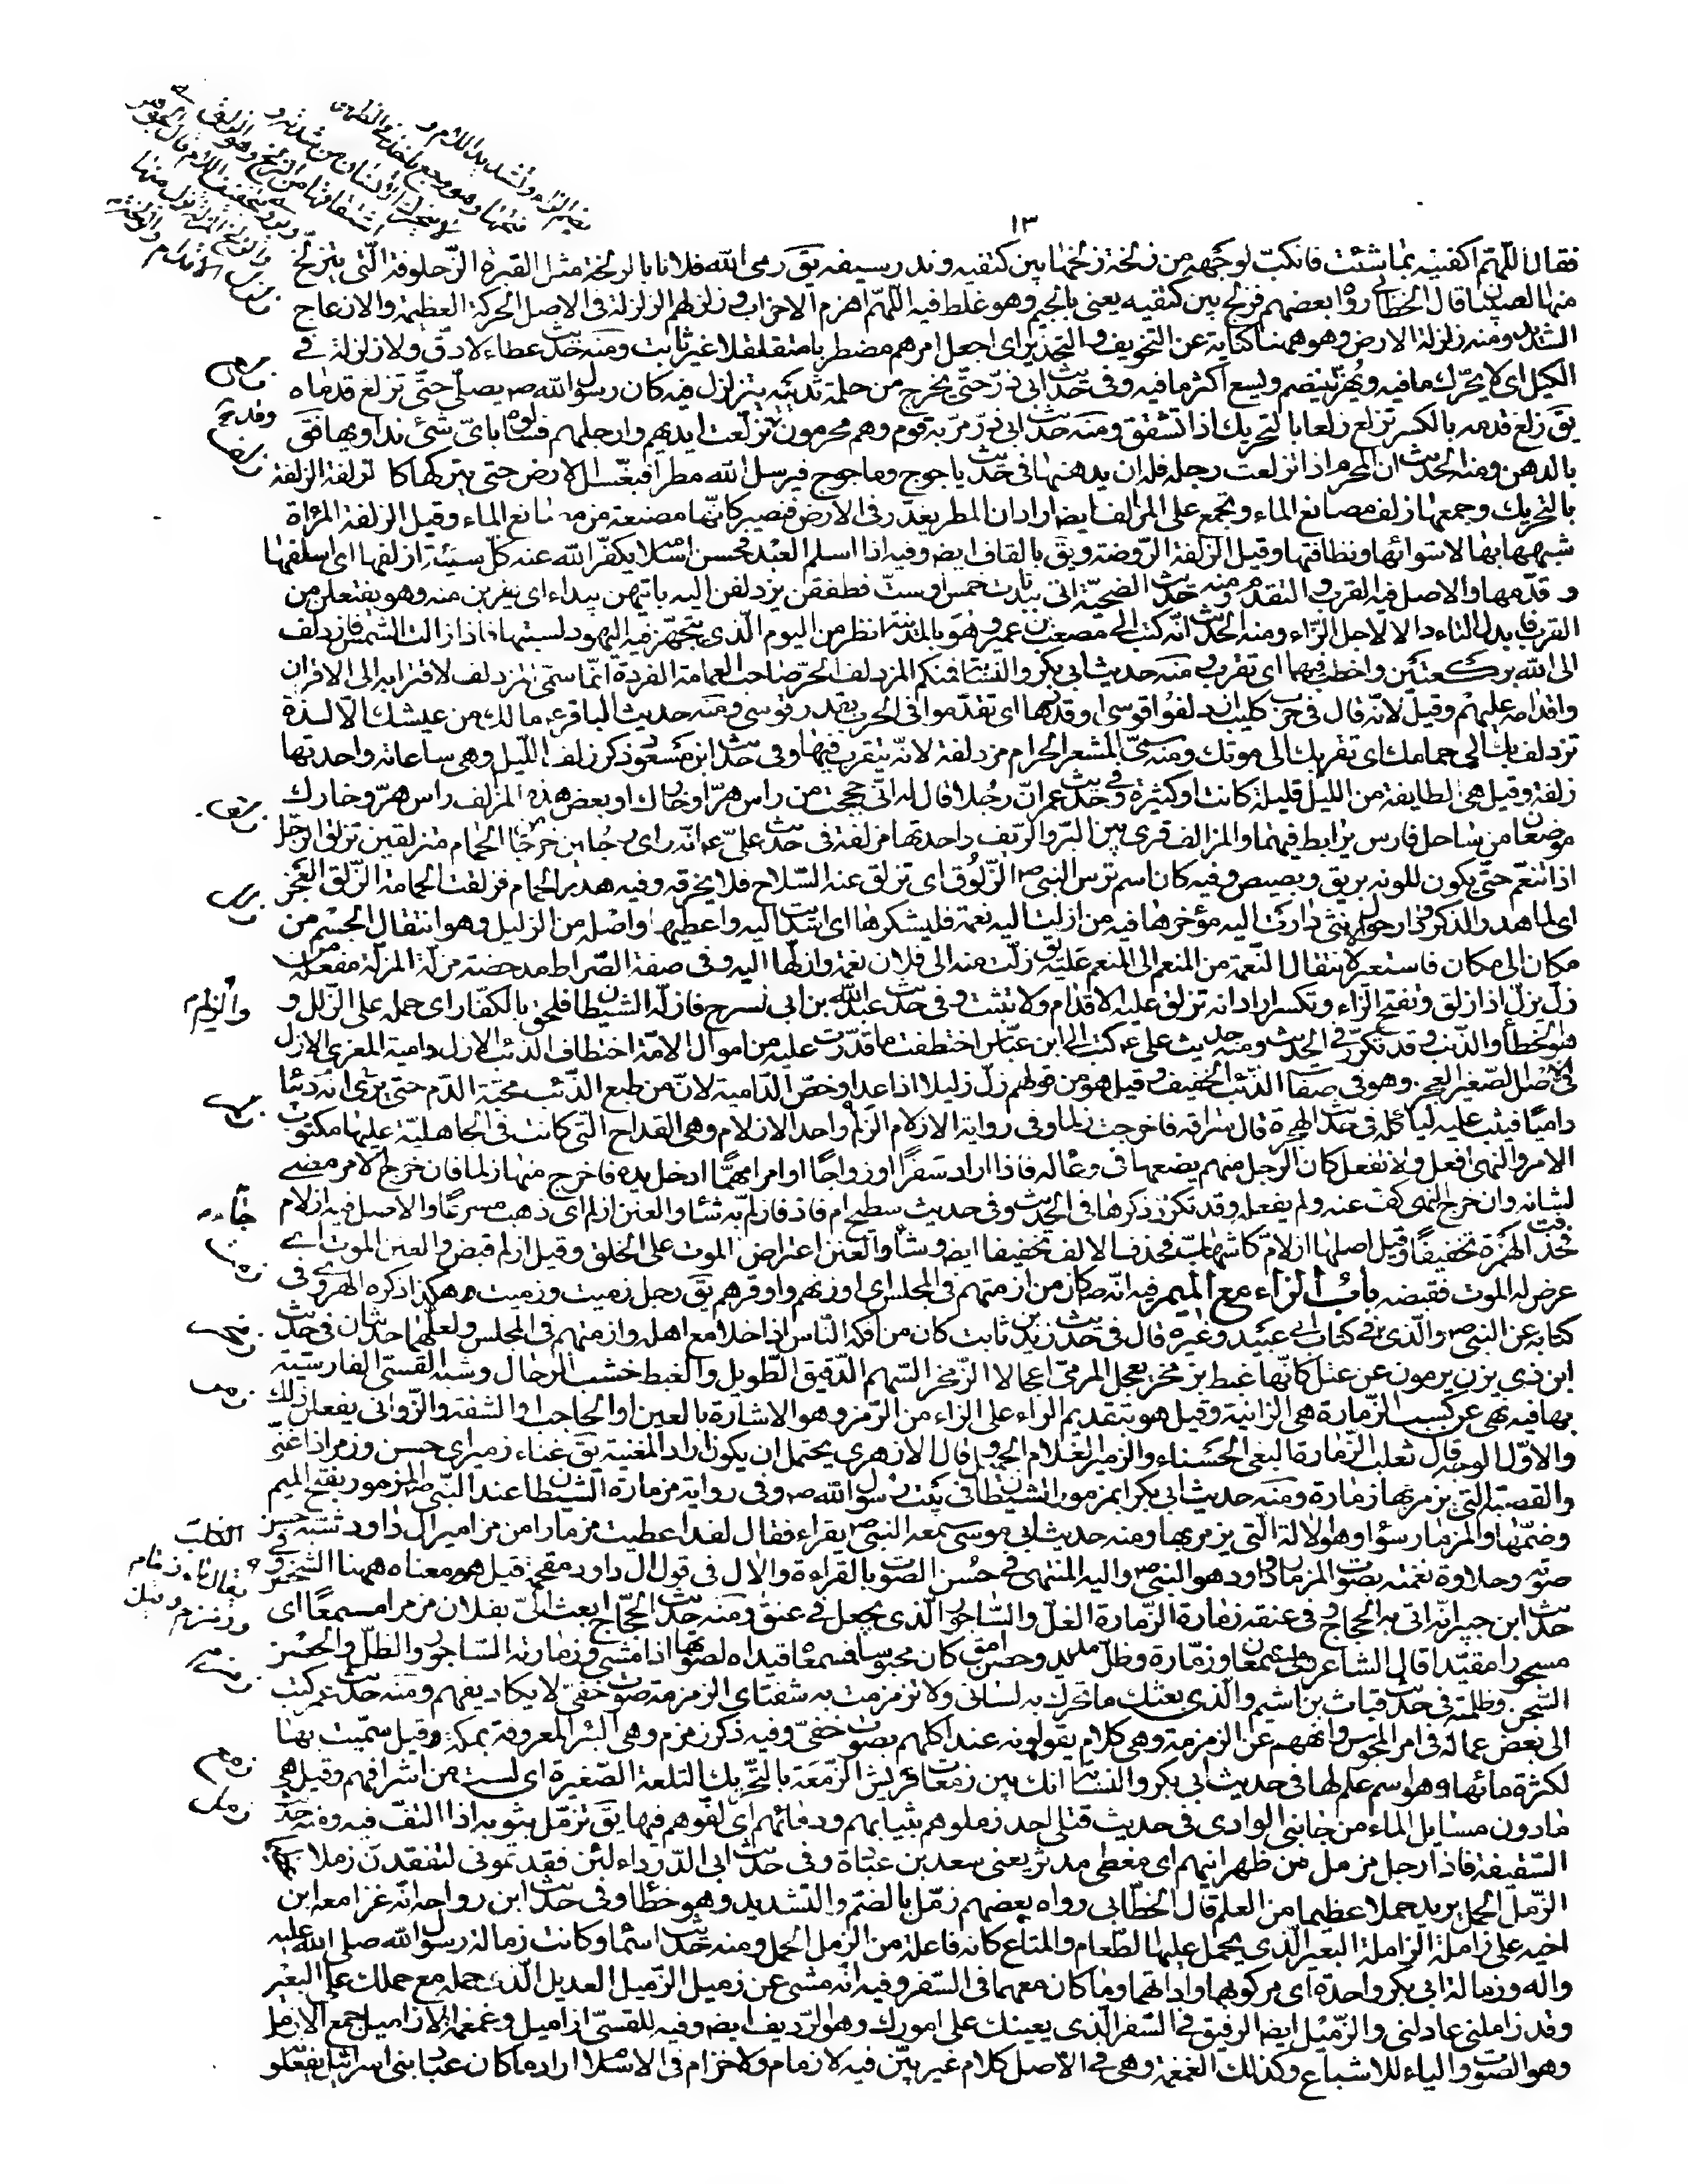 ١٣
فقال اللهم اكفنيه بما شئت فانكب لوجهه من زلخة زلخها بين كتفيه وندر سيفه يق رمى الله فلانا بالزلخة مثل القبرة الزحلوقة التى يتزلخ
منها الصبيان قال الخطابى رواه بعضهم فزلج بين كتفيه يعنى بالجيم وهو غلط فيه اللهم اهزم الاحزاب وزلزلهم الزلزلة فى الاصل الحركة العظيمة والازعاج
الشديد ومنه زلزلة الارض وهو ههنا كناية عن التخويف والتحذير اى اجعل امرهم مضطربا متقلقلا غير ثابت ومنه حديث عطاء لا دق ولا زلزلة فى
الكيل اى لا يحرك ما فيه ويهز لينضم ويسع اكثر ما فيه وفى حديث ابى ذر حتى يخرج من حلمة ثدييه يتزلزل فيه كان رسول الله ص يصلى حتى تزلع قدماه
يق زلع قدمه بالكسر تزلع زلعا بالتحريك اذا تشقق ومنه حديث ابى ذر مر به قوم وهم محرمون وقد تزلعت ايديهم وارجلهم فسألوه باى شئ نداويها فق
بالدهن ومنه الحديث ان المحرم اذا تزلعت رجله فله ان يدهنها فى حديث ياجوج وماجوج فيرسل الله مطرا فيغسل الارض حتى يتركها كالزلفة الزلفة
بالتحريك وجمعها زلف مصانع الماء وتجمع على المزالف ايضا اراد ان المطر يغدر فى الارض فتصير كانها مصنعة من مصانع الماء وقيل الزلفة المرآة
شبهها بها لاستوائها ونظافتها وقيل الزلفة الروضة ويق بالقاف ايضا وفيه اذا اسلم العبد فحسن اسلامه يكفر الله عنه كل سيئة ازلفها اى اسلفها
وقدمها والاصل فيه القرب والتقدم ومنه حديث الضحية اتى ببدنات خمس او ست فطفقن يزدلفن اليه بايتهن يبداء اى يقربن منه وهو يفتعلن من
القرب فابدل التاء دالا لاجل الزاء ومنه الحديث انه كتب الى مصعب بن عمير وهو بالمدينة انظر من اليوم الذى تتجهز فيه اليهود لسبتها فاذا زالت الشمس فازدلف
الى الله بركعتين واخطب فيهما اى تقرب ومنه حديث ابى بكر والنسابة فمنكم المزدلف الحر صاحب العمامة الفردة انما سمى المزدلف لاقترابه الى الاقران
واقدامه عليهم وقيل لانه قال فى حرب كليب ازدلفوا قوسى او قدرها اى تقدموا فى الحرب بقدر قوسى ومنه حديث الباقر ع مالك من عيشك الا لذة
تزدلف بك الى حمامك اى تقربك الى موتك ومنه سمى المشعر الحرام مزدلفة لانه يتقرب فيها وفى حديث ابن مسعود ذكر زلف الليل وهى ساعاته واحدتها
زلفة وقيل هى الطايفة من الليل قليلة كانت او كثيرة وفى حديث عمر ان رجلا قال له انى حججت من راس هر او خارك او بعض هذه المزالف راس هر وخارك
موضعان من ساحل فارس يرابط فيهما والمزالف قرى بين البر والريف واحدتها مزلفة فى حديث على ع انه راى رجلين خرجا من الحمام متزلقين تزلق الرجل
اذا تنعم حتى يكون للونه بريق وبصيص وفيه كان اسم ترس النبى ص الزلوق اى تزلق عنه السلاح فلا يخرقه وفيه هدر الحمام فزلقت الحمامة الزلق العجز
اى لما هدر الذكر ودار حول الانثى دارت اليه مؤخرها فيه من ازلت اليه نعمة فليشكرها اى اسديت اليه واعطيها واصله من الزليل وهو انتقال الجسم من
مكان الى مكان فاستعير لانتقال النعمة من المنعم الى المنعم عليه يق زلت منه الى فلان نعمة وازلها اليه وفى صفة الصراط مدحضة مزلة المزلة مفعلة من
زل يزل اذا زلق وتفتح الزاء وتكسر اراد انه تزلق عليه الاقدام ولا تثبت وفى حديث عبد الله بن ابى سرح فازله الشيطان فلحق بالكفار اى حمله على الزلل و
هو الخطا والذنب وقد تكرر فى الحديث ومنه حديث على ع كتب الى ابن عباس اختطفت ما قدرت عليه من اموال الامة اختطاف الذئب الازل دامية المعزى الازل
فى الاصل الصغير العجز وهو فى صفات الذئب الخفيف وقيل هو من قولهم زل زليلا اذا عدا وخص الدامية لان من طبع الذئب محبة الدم حتى يرى انه ذئبا
داميا فيثب عليه ليأكله فى حديث الهجرة قال سراقة فاخرجت زلما وفى رواية الازلام الزلم واحد الازلام وهى القداح التى كانت فى الجاهلية عليها مكتوب
الامر والنهى افعل ولا تفعل كان الرجل منهم يضعها فى وعاء له فاذا اراد سفرا او زواجا او امرا مهما ادخل يده فاخرج منها زلما فان خرج الامر مضى
لشانه وان خرج النهى كف عنه ولم يفعله وقد تكرر ذكرها فى الحديث وفى حديث سطيح ام فاد فازلم به شأو العنن ازلم اى ذهب مسرعا والاصل فيه ازلأم
فحذفت الهمزة تخفيفا وقيل اصلها ازلام كاشهاب فحذف الالف تخفيفا ايضا وشأو العنن اعتراض الموت على الخلق وقيل ازلم قبض والعنن الموت اى
عرض له الموت فقبضه باب الزاء مع الميم فيه انه ص كان من ازمتهم فى المجلس اى ارزنهم واوقرهم يق رجل زميت وزميت هكذا ذكره الهروى فى
كتابه عن النبى ص والذى فى كتاب ابى عبيد وغيره قال فى حديث زيد بن ثابت كان من افكه الناس اذا خلا مع اهله وازمتهم فى المجلس ولعلهما حديثان فى حديث
ابن ذى يزن يرمون عن عتل كانها غبط بزمخر يعجل المرمى اعجالا الزمخر السهم الدقيق الطويل والغبط خشب الرحال وشبه القسى الفارسية
بها فيه نهى عن كسب الزمارة هى الزانية وقيل هو بتقديم الراء على الزاء من الرمز وهو الاشارة بالعين او الحاجب او الشفة والزوانى يفعلن ذلك
والاول الوجه قال ثعلب الزمارة البغى الحسناء والزمير الغلام الجميل وقال الازهرى يحتمل ان يكون اراد المغنية يق غناء زمير اى حسن وزمر اذا غنى
والقصبة التى يزمر بها زمارة ومنه حديث ابى بكر ابمزمور الشيطان فى بيت رسول الله ص وفى رواية مزمارة الشيطان عند النبى ص المزمور بفتح الميم
وضمها والمزمار سواء وهو الالة التى يزمر بها ومنه حديث ابى موسى سمعه النبى ص يقراء فقال لقد اعطيت مزمارا من مزامير ال داود شبه حسن
صوته وحلاوة نغمته بصوت المزمار وداود هو النبى ص واليه المنتهى فى حسن الصوت بالقراءة والال فى قوله ال داود مقحمة قيل هو معناه ههنا الشخص وفى
حديث ابن جبير انه اتى به الحجاج وفى عنقه زمارة الزمارة الغل والساجور الذى يجعل فى عنق ومنه حديث الحجاج ابعث الى بفلان مزمرا مسمعا اى
مسجورا مقيدا قال الشاعر ولى مسمعان وزمارة وظل مديد وحصن امق كان محبوسا فمسمعاه قيداه لصوتهما اذا مشى وزمارته الساجور والظل والحصن
السجن وظلمته فى حديث قباث بن اشيم والذى بعثك ما تحرك به لسانى ولا تزمزمت به شفتاى الزمزمة صوت خفى لا يكاد يفهم ومنه حديث عمر كتب
الى بعض عماله فى امر المجوس وانههم عن الزمزمة وهى كلام يقولونه عند اكلهم بصوت خفى وفيه ذكر زمزم وهى البئر المعروفة بمكة وقيل سميت بها
لكثرة مائها وهو اسم علم لها فى حديث ابى بكر والنسابة انك من زمعات قريش الزمعة بالتحريك التلعة الصغيرة اى لست من اشرافهم وقيل هى
ما دون مسايل الماء من جانبى الوادى فى حديث قتلى احد زملوهم بثيابهم ودمائهم اى لفوهم فيها يق تزمل بثوبه اذا التف فيه ومنه حديث
السقيفة فاذا رجل مزمل بين ظهرانيهم اى مغطى مدثر يعنى سعد بن عبادة وفى حديث ابى الدرداء لئن فقدتمونى لتفقدن زملا
الزمل الحمل يريد حملا عظيما من العلم قال الخطابى رواه بعضهم زمل بالضم والتشديد وهو خطأ وفى حديث ابن رواحة انه غزا معه ابن
اخيه على زاملة الزاملة البعير الذى يحمل عليها الطعام والمتاع كانه فاعلة من الزمل الحمل ومنه حديث اسماء وكانت زمالة رسول الله صلى الله عليه
واله وزمالة ابى بكر واحدة اى مركوبهما واداتهما وما كان معهما فى السفر وفيه انه مشى عن زميل الزميل العديل الذى حمله مع حملك على البعير
وقد زاملنى عادلنى والزميل ايضا الرفيق فى السفر الذى يعينك على امورك وهو الرديف ايضا وفيه للقسى ازاميل وغمغمة الازاميل جمع الازمل
وهو الصوت والياء للاشباع وكذلك الغمغمة وهى فى الاصل كلام غير بين فيه لا زمام ولا خزام فى الاسلام اراد ما كان عباد بنى اسرائيل يفعلو